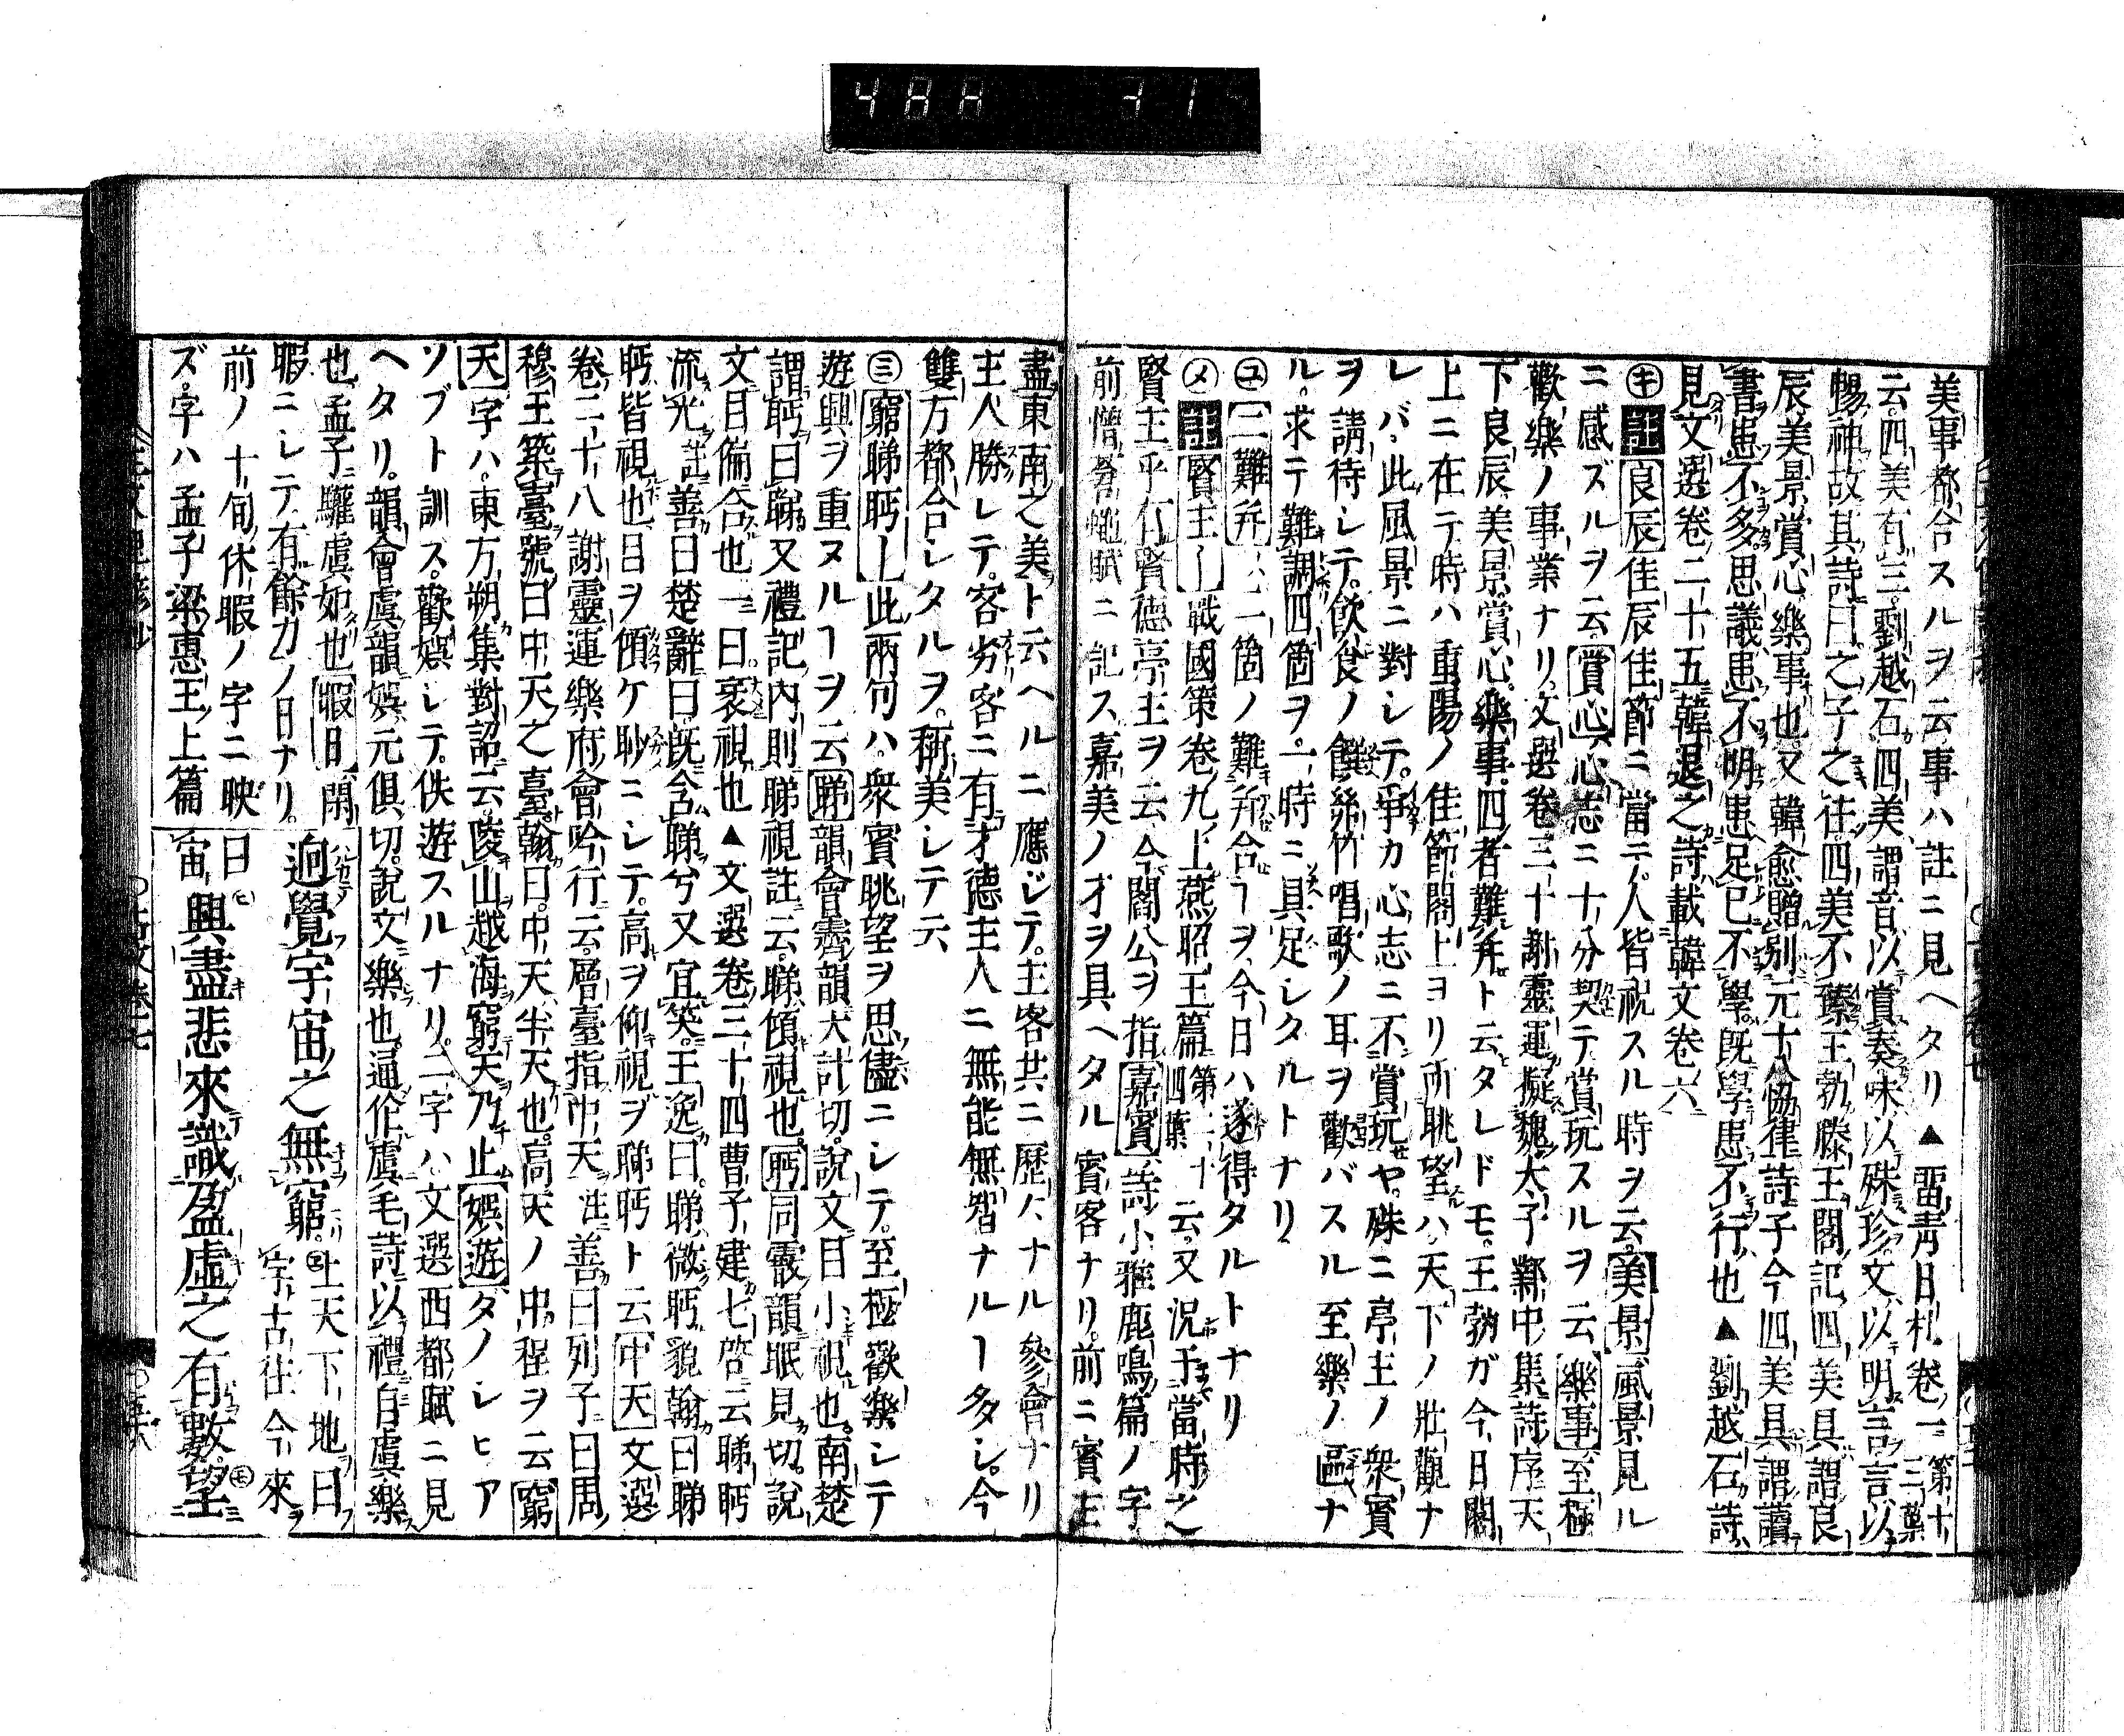 美事都合スルヲ云事ハ註ニ見ヘタリ▲雷青日札卷二第十三葉
云四美有三劉越石四美謂音以賞奏味以殊珍文以明言言以
暢神故其詩曰之子之往四美不臻王勃滕王閣記四美具謂良
辰美景賞心樂事也又韓愈贈別元十八協律詩子今四美具謂讀
書患不多思議患不明患足已不學既學患不行也▲劉越石詩
見文選卷二十五韓退之詩載韓文卷六
㋖註良辰佳辰佳節ニ當テ人皆祝スル時ヲ云美景風景見ル
ニ感ズルヲ云賞心心志ニ十分契テ賞玩スルヲ云樂事至極
歡樂ノ事業ナリ文選卷三十謝靈運擬魏太子鄴中集詩序天
下良辰美景賞心樂事四者難并ト云タレドモ王勃ガ今日閣
上ニ在テ時ハ重陽ノ佳節閣上ヨリ所眺望ハ天下ノ壯觀ナ
レバ此風景ニ對レテ爭カ心志ニ不賞玩ヤ殊ニ亭主ノ衆賓
ヲ請待レテ飲食ノ饌絲竹唱歌ノ耳ヲ歡バスル至樂ノ區ナ
ル求テ難調四箇ヲ一時ニ具足レタルトナリ
㋴二難并二箇ノ難并合ヿヲ今日ハ遂得タルトナリ
㋱註賢主｜戰國策卷九上燕昭王篇第二十四葉云又況于當時之
賢主乎有賢德亭主ヲ云今閻公ヲ指嘉賓詩小雅鹿鳴篇ノ字
前憎蒼蠅賦ニ記ス嘉美ノ才ヲ具ヘタル賓客ナリ前ニ賓主
盡東南之美ト云ヘルニ應ジテ主客共ニ歷々ナル參會ナリ
主人勝レテ客劣客ニ有才德主人ニ無能無智ナルヿ多シ今
雙方都合レタルヲ稱美レテ云
㋯窮睇眄｜此兩句ハ衆賓眺望ヲ思儘ニレテ至極歡樂レテ
遊興ヲ重ヌルヿヲ云睇韻會霽韻大計切說文目小視也南楚
謂眄曰睇又禮記內則睇視註云睇傾視也眄同霰韻眠見切說
文目偏合也一曰衺視也▲文選卷三十四曹子建七啓云睇眄
流光註善曰楚辭曰既含睇兮又宜笑王逸曰睇微眄貌翰曰睇
眄皆視也目ヲ傾ケ眇ニレテ高ヲ仰視ヲ睇眄ト云中天文選
卷二十八謝靈運樂府會吟行云層臺指中天註善曰列子曰周
穆王築臺號曰中天之臺翰曰中天半天也高天ノ中程ヲ云窮
天字ハ東方朔集對詔云陵山越海窮天乃止娯遊タノレヒア
ソブト訓ス歡娯レテ佚遊スルナリ二字ハ文選西都賦ニ見
ヘタリ韻會虞韻娯元俱切說文樂也逼作虞毛詩以禮自虞樂
也孟子驩虞如也暇日閑
暇ニレテ有餘力ノ日ナリ
前ノ十旬休暇ノ字ニ映
ズ字ハ孟子梁惠王上篇
迥覺宇宙之無窮㋓上天下地日宇古往今來
日宙興盡悲來識盈虛之有數望㋲